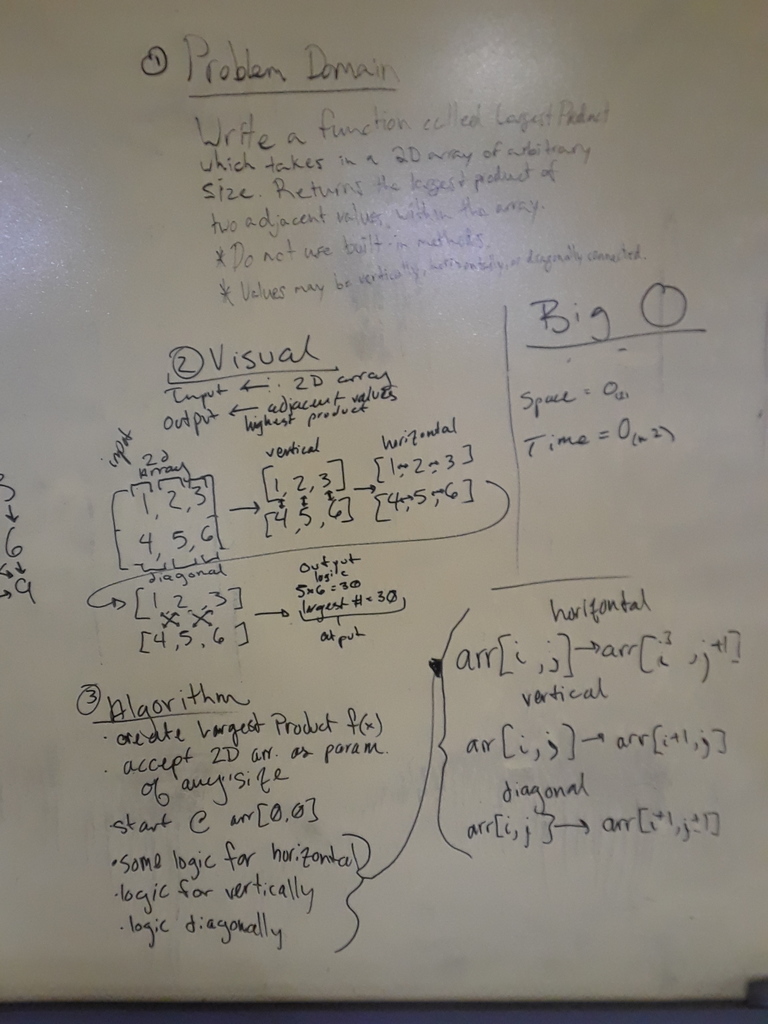 ① Problem Domain
Write a function called LargestProduct
which takes in a 2D array of arbitrary
size. Returns the largest product of
two adjacent values, within the array.
* Do not use built-in methods.
* Values may be vertically, horizontally, or diagonally connected.
② Visual
Input ← 2D array
Output ← adjacent values
highest product
input
2d
Array
1, 2, 3
4, 5, 6
vertical
[1, 2, 3]
[4, 5, 6]
horizontal
[1 2 3]
[4, 5, 6]
diagonal
[1 2 3]
[4, 5, 6]
output
logic
5*6=30
largest # = 30
output
6
9
Big O
Space = O(1)
Time = O(n2)
③ Algorithm
· create Largest Product f(x)
· accept 2D arr. as param.
of any size
start @ arr[0,0]
· some logic for horizontal
· logic for vertically
· logic diagonally
horizontal
arr[i, j] → arr[i, j+1]
vertical
arr[i, j] → arr[i+1, j]
diagonal
arr[i, j] → arr[i+1, j+1]